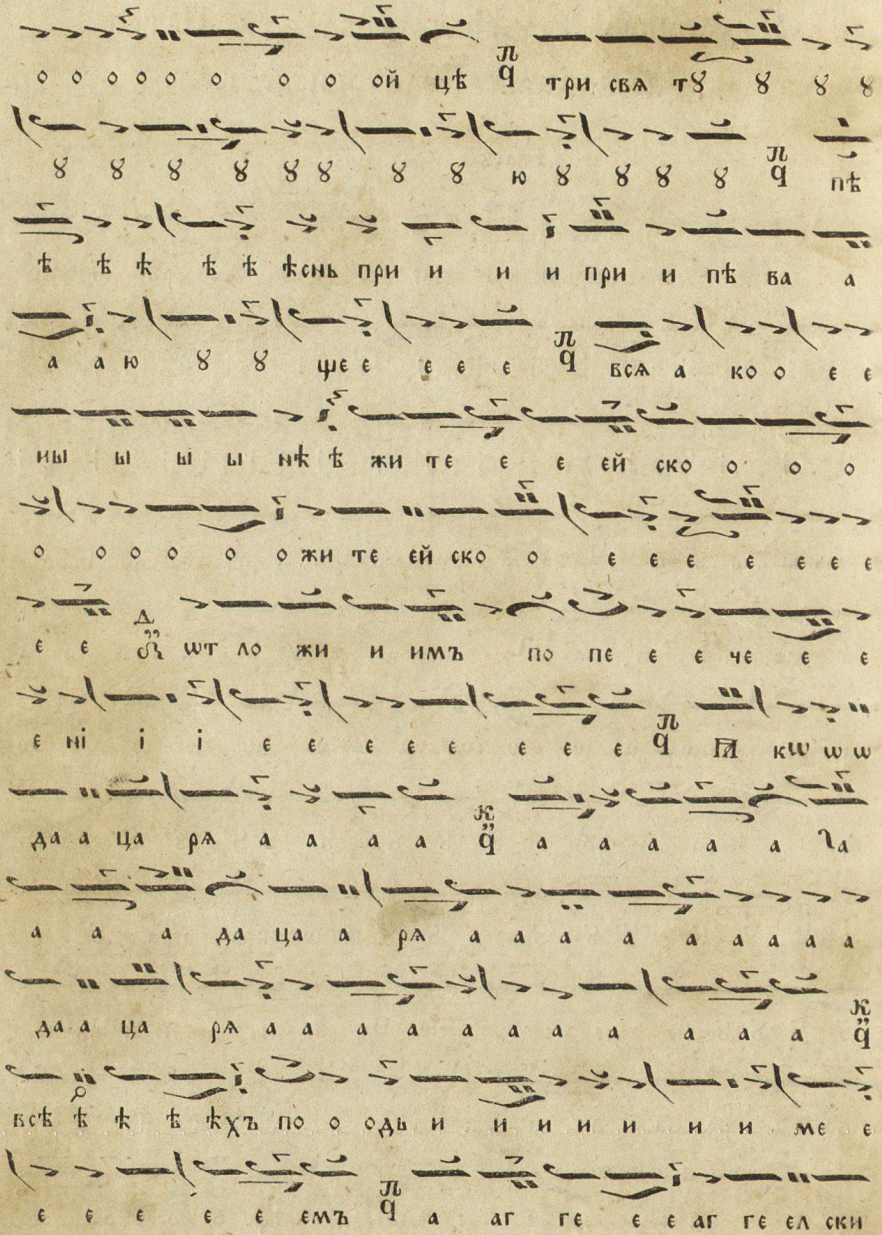 о о о о о о о о ой цѣ п҃ q три свѧ тꙋ ꙋ ꙋ ꙋ
ꙋ ꙋ ꙋ ꙋ ꙋ ꙋ ꙋ ꙋ ю ꙋ ꙋ ꙋ ꙋ п҃ q пѣ
ѣ ѣ ѣ ѣ ѣ ѣснь при и и и при и пѣ ва а
а а ю ꙋ ꙋ ще е е е е п҃ q всѧ а ко о е е
ны ы ы ы нѣ ѣ жи те е е ей ско о о о
о о о о о о жи те ей ско о е е е е е е е
е е д ѿт ло жи и имъ по пе е е че е е
е ні і і е е е е е е е е п q па кѡ ѡ ѡ
да а ца рѧ а а а а к q а а а а а га
а а а да ца а рѧ а а а а а а а а
да а ца рѧ а а а а а а а а а а а к q
всѣ ѣ ѣ ѣ ѣхъ по о оды и и и и и и и ме е
е е е е е емъ п q а аг ге е е аг ге ел ски